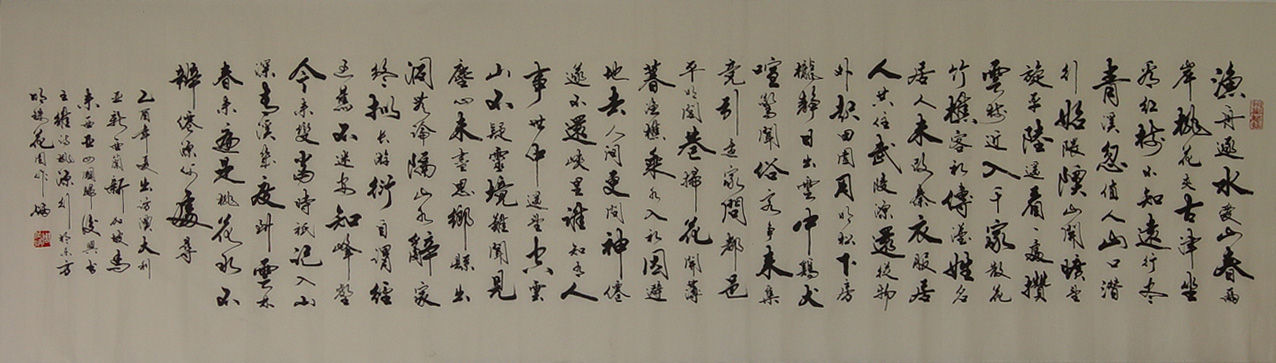 漁舟逐水愛山春兩
岸桃花夾古津坐
看紅樹不知遠行盡
青溪忽值人山口潛
行始隈隩山開曠望
旋平陸遥看一處攢
雲樹近入千家散花
竹樵客初傳漢姓名
居人未改秦衣服居
人共住武陵源還從物
外起田園月明松下房
櫳靜日出雲中鷄犬
喧驚聞俗客爭來集
競引還家問都邑
平明閭巷掃花開薄
暮漁樵乘水入初因避
地去人間更問神僊
遂不還峽里誰知有人
事世中遥望空雲
山不疑靈境難聞見
塵心未盡思鄉縣出
洞無論隔山水辭家
終擬長游衍自謂經
過舊不迷安知峰壑
今來變當時祇記入山
深青溪幾度到雲林
春來遍是桃花水不
辨僊源何處尋
乙酉年夏出訪澳大利
亞新西蘭新加坡馬
來西亞四國歸後興書
王維詩桃源行於京方
明珠花園作